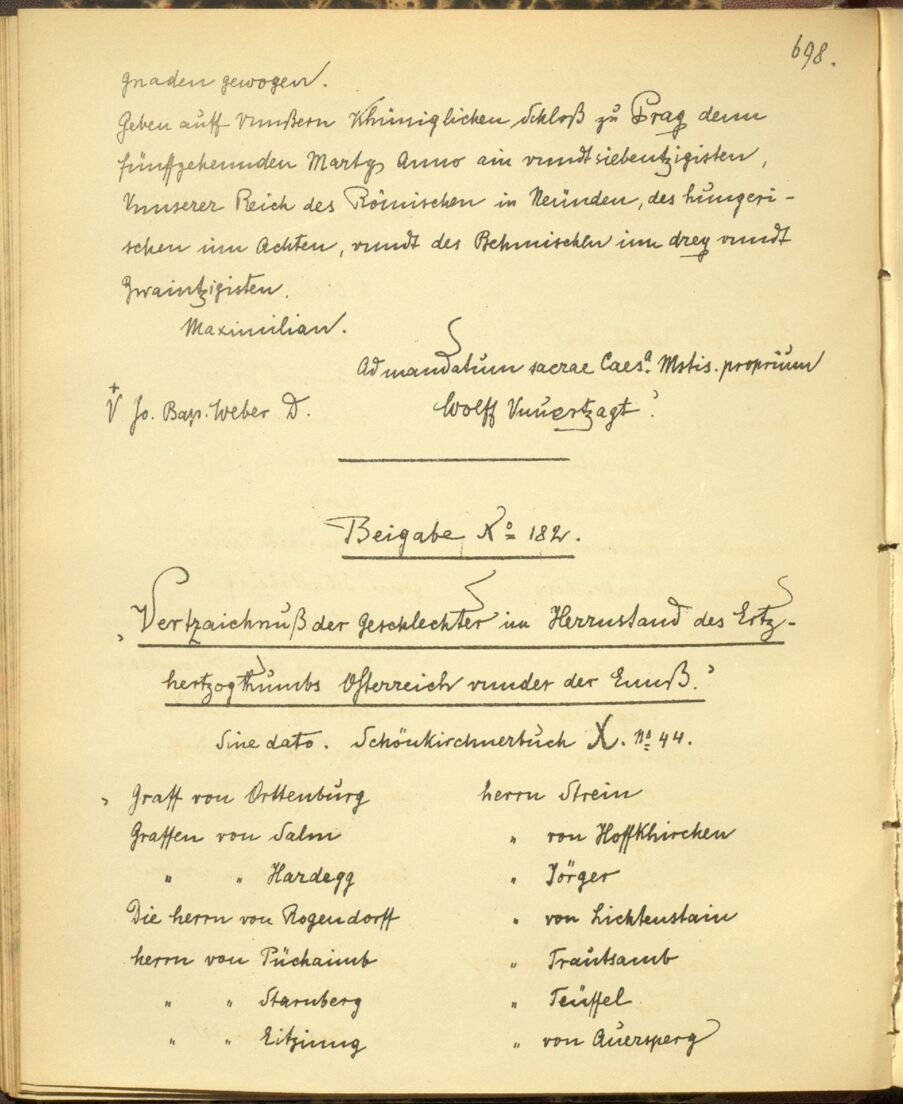 698.
gnaden gewogen.
Geben auff Vnnßern Khüniglichen Schloß zu Prag denn
fünffzehennden Martÿ Anno ain vnndt siebentzigisten,
Vnnserer Reich des Römischen in Neünden, des hungeri-
schen inn Achten, vnndt des Behmischen inn dreÿ vnndt
zwaintzigisten.
Maximilian.
Ad mandatum sacrae Caesª. Mstis. proprium
V Jo. Bap. Weber D.
Wolff Vnuertzagt
Beigabe No 182.
„Vertzaichnuß der Geschlechter im Herrnstand des Ertz-
hertzogthumbs Osterreich vnnder der Ennß.“
Sine dato. Schönkirchnerbuch X. No 44.
„Graff von Orttenburg
Graffen von Salm
" " Hardegg
Die herrn von Rogendorff
herrn von Püchaimb
" " Starnberg
" " Eitzinng
herrn Strein
" von Hoffkhirchen
" Jörger
" von Lichtenstain
" Trautsamb
" Teüffel
" von Auersperg